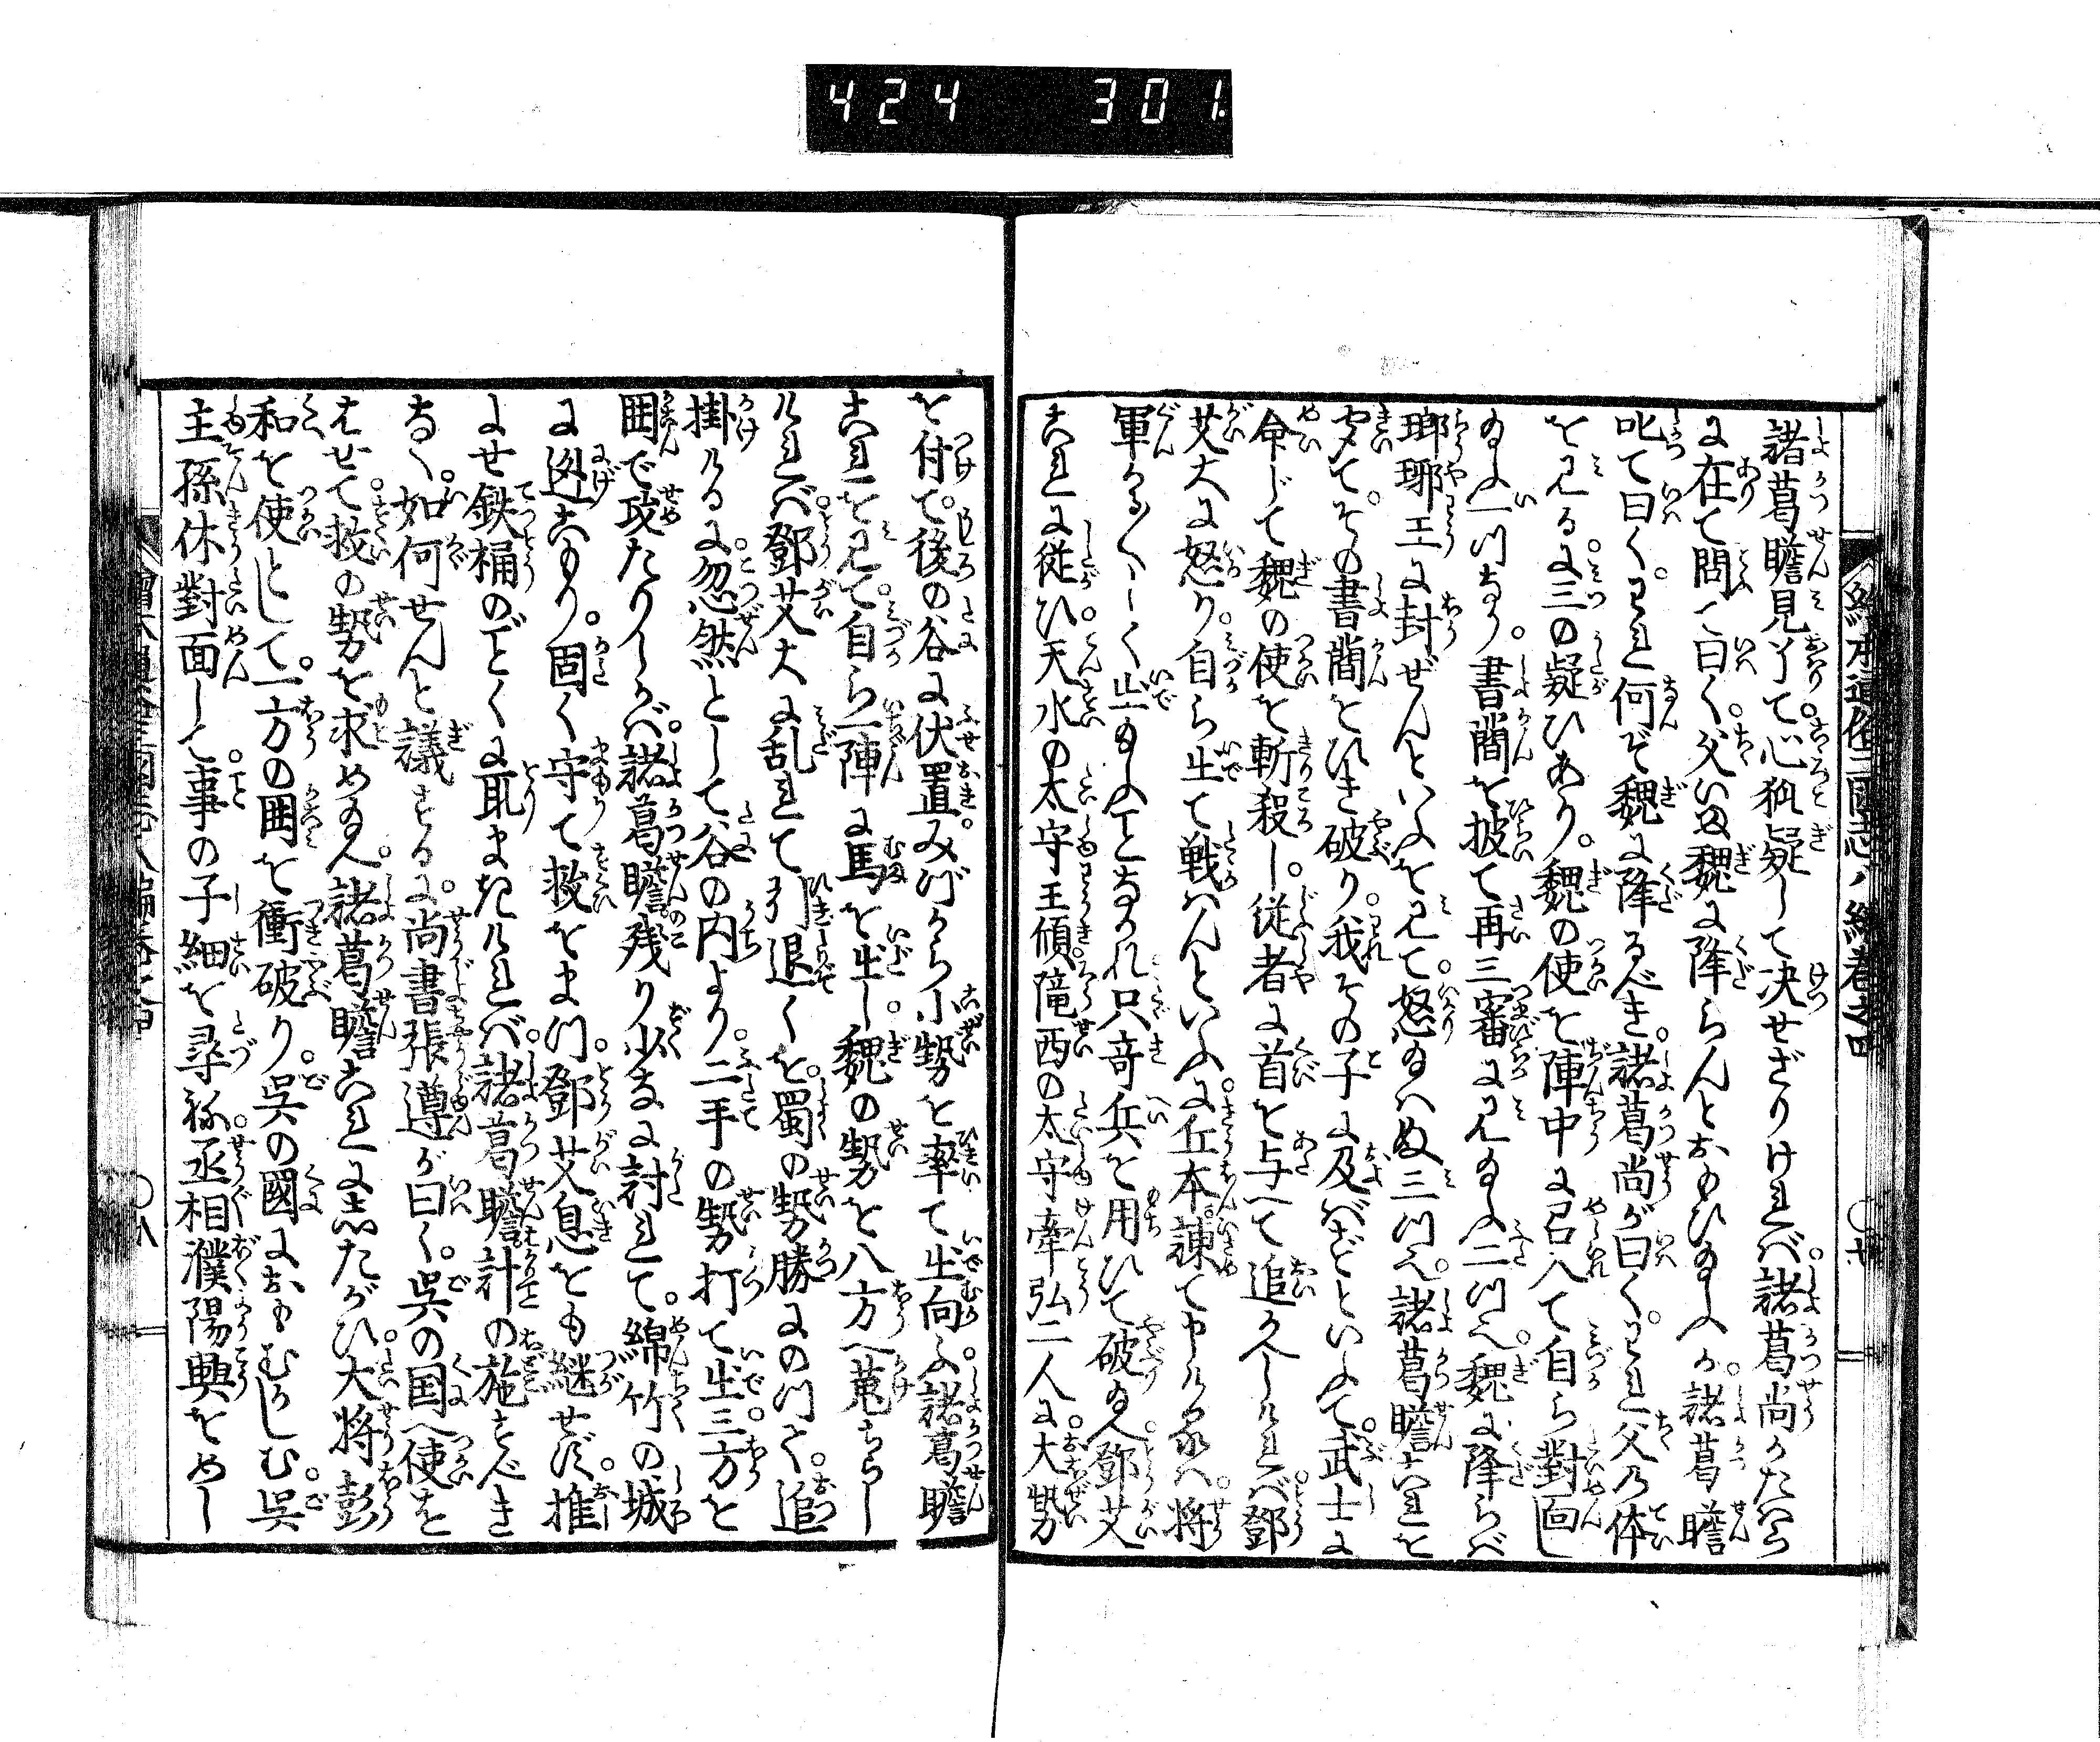 424 301.
諸葛瞻見了て心狐疑して決せざりければ。諸葛尚かたはら
に在て問て曰く。父いま魏に降らんとおもひ給ふか。諸葛瞻
叱て曰く。われ何ぞ魏に降るべき。諸葛尚が曰く。われ父の体
を見るに。三の疑ひあり。魏の使を陣中に召入て自ら對面し
給ふ一ツなり。書簡を披て再三審に見給ふ二ツ。魏に降らば
瑯琊王に封ぜんといふを見て。怒給はぬ三ツ。諸葛瞻これを
きいて。その書簡をひき破り。我その子に及ばずといふて。武士に
命じて魏の使を斬殺し。従者に首を与へて追かへしければ鄧
艾大に怒り。自ら出て戦はんといふに。丘本諫て申けるは。将
軍かる〴〵しく出給ふことなかれ只奇兵を用ひて破給へ。鄧艾
これに従ひ。天水の太守王傾。隴西の太守牽弘二人に。大勢
を付て。後の谷に伏置。みづから小勢を率て出向ふ。諸葛瞻
これを見て。自ら一陣に馬を出し。魏の勢を八方へ蒐ちらし
ければ。鄧艾大に乱れて引退くを。蜀の勢勝にのつて。追
掛けるに。忽然として谷の内より。二手の勢打て出。三方を
囲で攻たりしかば。諸葛瞻残り少なに討れて。綿竹の城
に迯こもり。固く守て救をまつ。鄧艾息をも継せず。推
よせ鉄桶のごとくに取まきければ。諸葛瞻計の施すべき
なく。如何せんと議するに。尚書張遵が曰く。呉の国へ使を
はせて。救の勢を求め給へ。諸葛瞻これにしたがひ。大将彭
和を使として。一方の囲を衝破り。呉の國におもむかしむ。呉
主孫休對面して。事の子細を尋ね。丞相濮陽興をめし